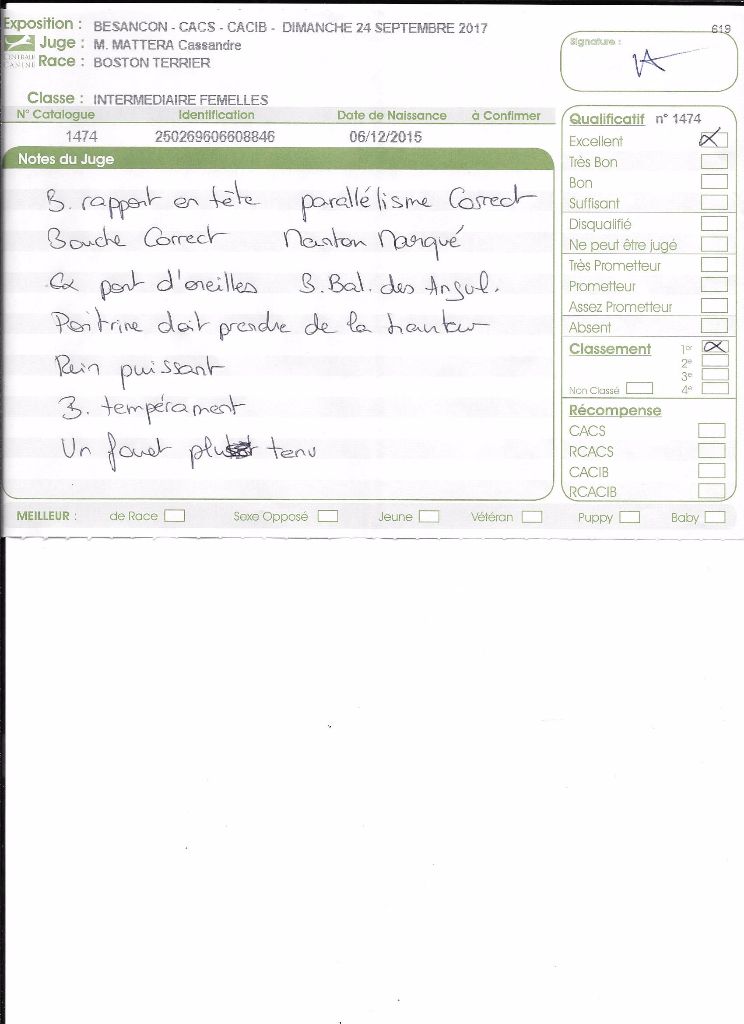 Exposition : BESANCON - CACS - CACIB - DIMANCHE 24 SEPTEMBRE 2017
619
Juge : M. MATTERA Cassandre
Signature :
CENTRALE CANINE
Race : BOSTON TERRIER
Classe : INTERMEDIAIRE FEMELLES
N° Catalogue Identification Date de Naissance à Confirmer
1474 250269606608846 06/12/2015
Notes du Juge
B. rapport en tête parallélisme Correct
Bouche Correct Menton Marqué
port d'oreilles B. Bal. des Angul.
Poitrine doit prendre de la hauteur
Rein puissant
B. tempérament
Un fouet plus tenu
Qualificatif n° 1474
Excellent
Très Bon
Bon
Suffisant
Disqualifié
Ne peut être jugé
Très Prometteur
Prometteur
Assez Prometteur
Absent
Classement 1er
2e
3e
Non Classé 4e
Récompense
CACS
RCACS
CACIB
RCACIB
MEILLEUR : de Race Sexe Opposé Jeune Vétéran Puppy Baby